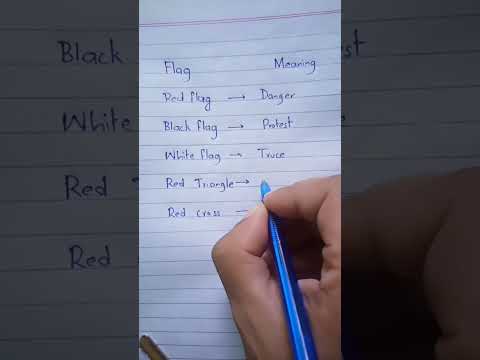 Flag Meaning
Red flag → Danger
Black flag → Protest
White flag → Truce
Red Triangle →
Red cross —